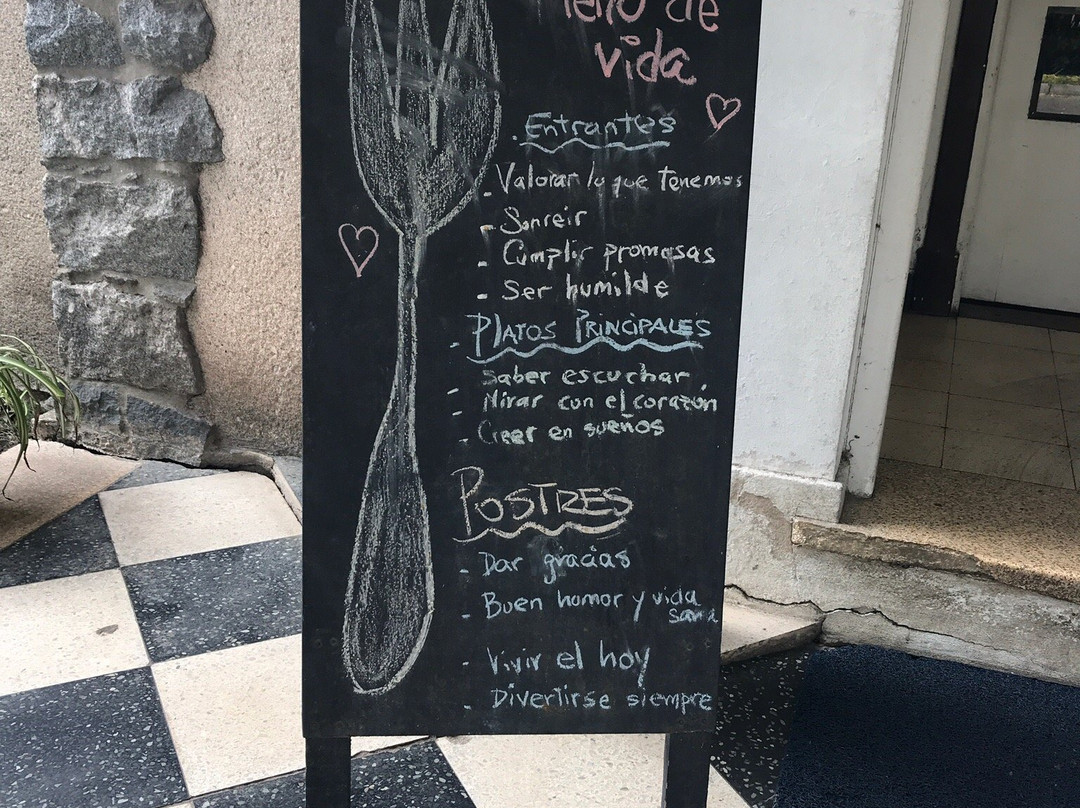 de
vida
. Entrantes
- Valorar lo que tenemos
- Sonreir
- Cumplir promesas
- Ser humilde
. PLATOS PRINCIPALES
- Saber escuchar
- Mirar con el corazón
- Creer en sueños
POSTRES
- Dar gracias
- Buen humor y vida
sana
- Vivir el hoy
- Divertirse siempre